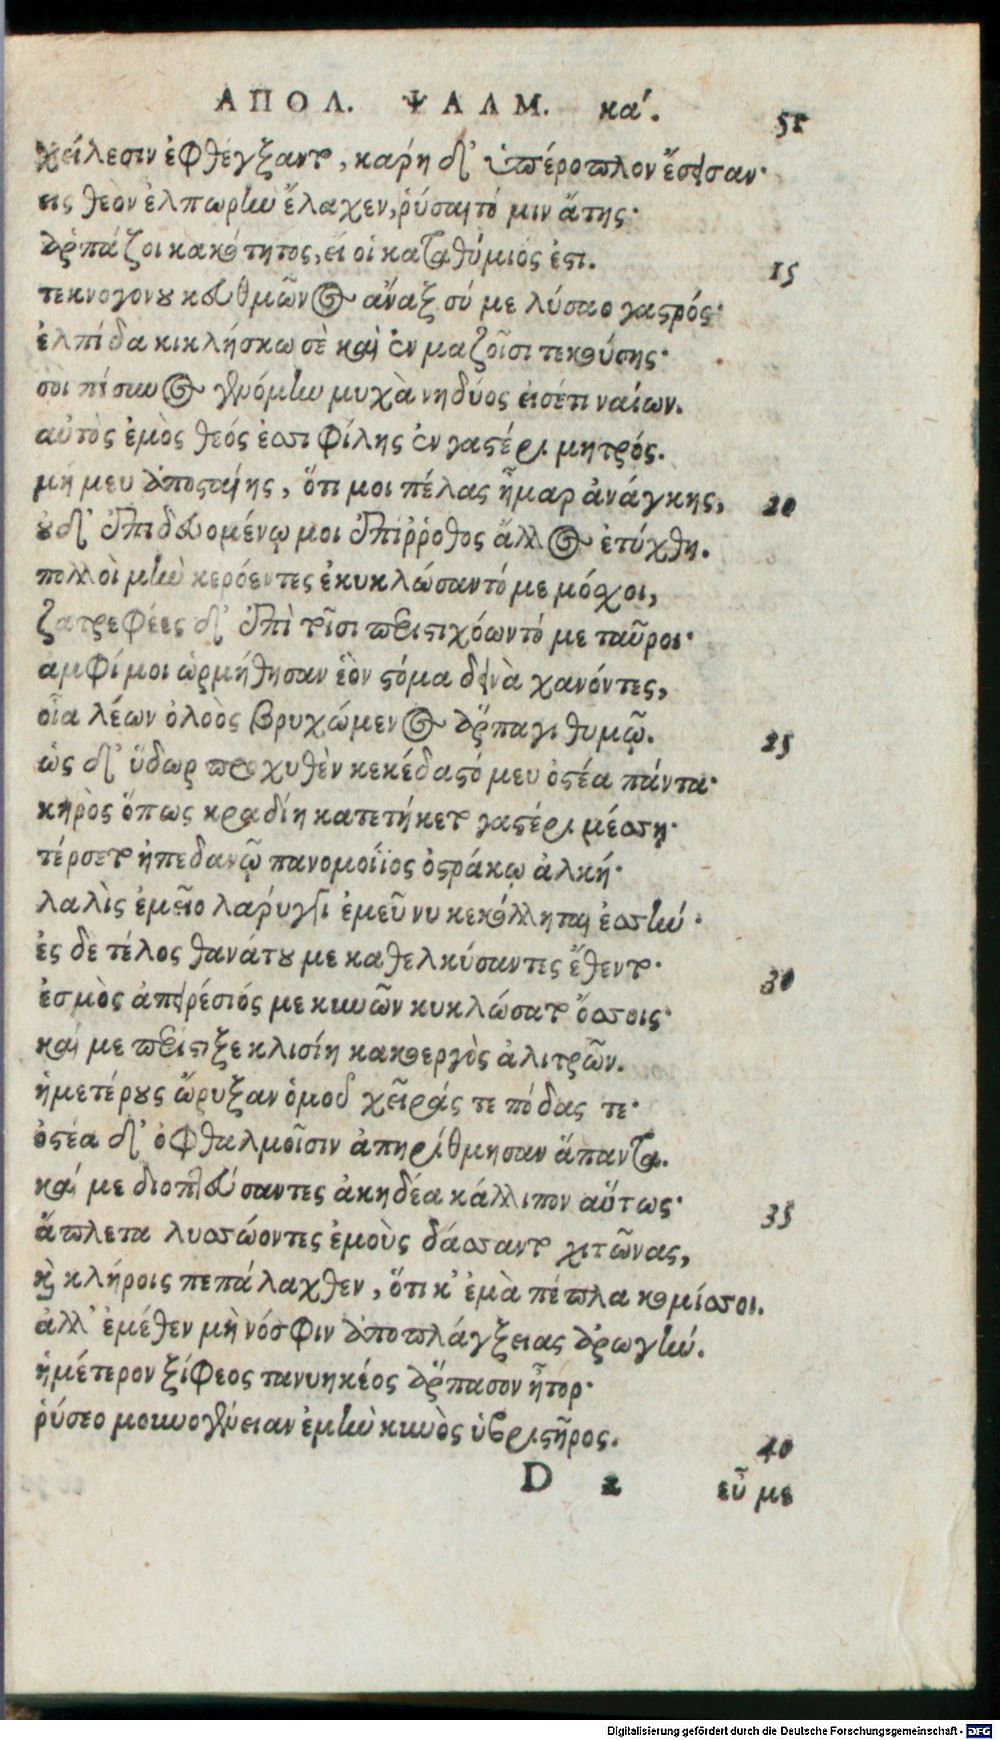 ΑΠΟΛ. ΨΑΛΜ. κα'. 51
χείλεσιν ἐφθέγξαντο, κάρη δ' ὑπέροπλον ἔσεισαν·
εἰς θεὸν ἐλπωρὴν ἔλαχεν, ῥύσαιτό μιν ἄτης·
ἁρπάζοι κακότητος, εἴ οἱ καταθύμιός ἐστι. 15
τεκνογόνου κευθμῶνος ἄναξ σύ με λύσαο γαστρός·
ἐλπίδα κικλήσκω σὲ καὶ ἐν μαζοῖσι τεκούσης·
σοὶ πίσυνος γενόμην μυχὰ νηδύος εἰσέτι ναίων.
αὐτὸς ἐμὸς θεός ἐσσι φίλης ἐν γαστέρι μητρός.
μή μευ ἀποσταίης, ὅτι μοι πέλας ἦμαρ ἀνάγκης, 20
οὐδ' ἐπιδευομένῳ μοι ἐπίρροθος ἄλλος ἐτύχθη.
πολλοὶ μὲν κερόεντες ἐκυκλώσαντό με μόσχοι,
ζατρεφέες δ' ἐπὶ τοῖσι περιστιχόωντό με ταῦροι·
ἀμφί μοι ὡρμήθησαν ἑὸν στόμα δεινὰ χανόντες,
οἷα λέων ὀλοὸς βρυχώμενος ἅρπαγι θυμῷ. 25
ὡς δ' ὕδωρ προχυθὲν κεκέδαστό μευ ὀστέα πάντα·
κηρὸς ὅπως κραδίη κατετήκετο γαστέρι μέσσῃ·
τέρσετο ἠπεδανῷ πανομοίϊος ὀστράκῳ ἀλκή·
λαλὶς ἐμεῖο λάρυγγι ἐμεῦ νυ κεκόλληται ἐσσήν·
ἐς δὲ τέλος θανάτου με καθελκύσαντες ἔθεντο·
ἑσμὸς ἀπειρέσιός με κυνῶν κυκλώσατο ὄσσοις· 30
καί με περιστιξε κλισίη κακοεργὸς ἀλιτρῶν.
ἡμετέρους ὤρυξαν ὁμοῦ χεῖράς τε πόδας τε·
ὀστέα δ' ὀφθαλμοῖσιν ἀπηρίθμησαν ἅπαντα.
καί με διοπτεύσαντες ἀκηδέα κάλλιπον αὔτως·
ἄπλετα λυσσώοντες ἐμοὺς δάσσαντο χιτῶνας, 35
καὶ κλήροις πεπάλαχθεν, ὅτι κ' ἐμὰ πέπλα κομίσσοι.
ἀλλ' ἐμέθεν μὴ νόσφιν ἀποπλάγξειας ἀρωγήν.
ἡμέτερον ξίφεος τανυηκέος ἅρπασον ἦτορ·
ῥύσεο μουνογένειαν ἐμὴν κυνὸς ὑβριστῆρος.
40
D 2 εὖ με
Digitalisierung gefördert durch die Deutsche Forschungsgemeinschaft - DFG